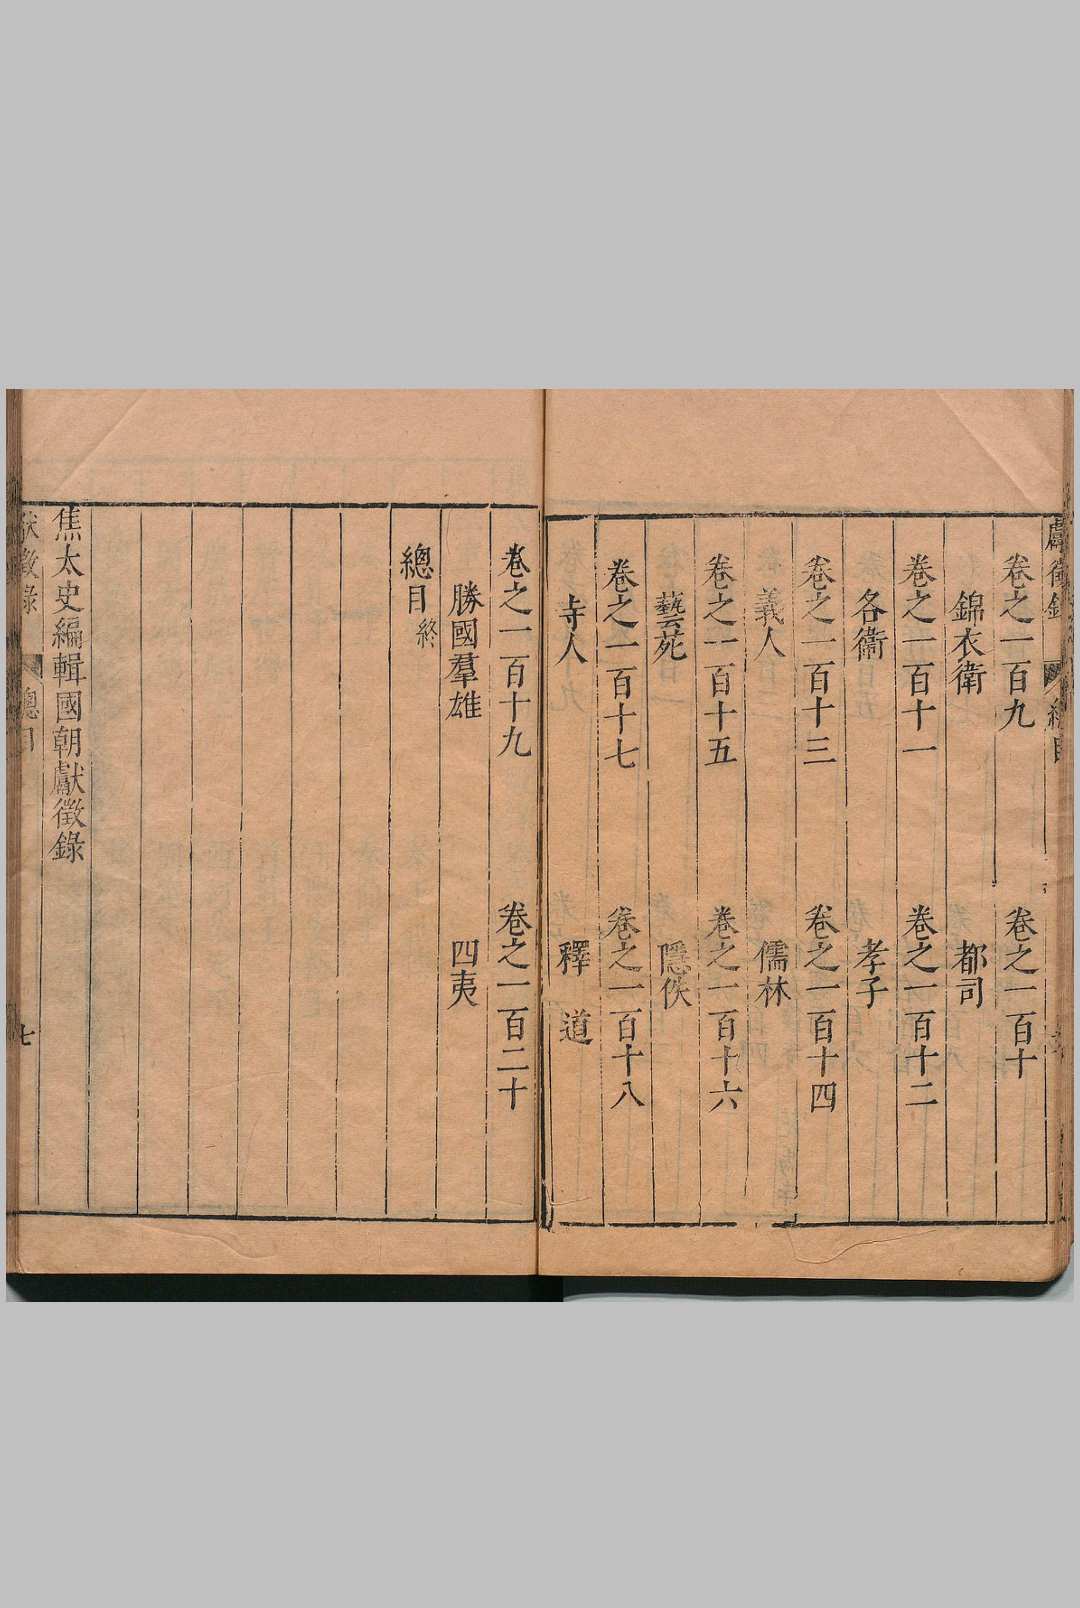 獻徵錄 總目
卷之一百九 卷之一百十
錦衣衛 都司
卷之一百十一 卷之一百十二
各衛 孝子
卷之一百十三 卷之一百十四
義人 儒林
卷之一百十五 卷之一百十六
藝苑 隱佚
卷之一百十七 卷之一百十八
寺人 釋 道
卷之一百十九 卷之一百二十
勝國羣雄 四夷
總目終
焦太史編輯國朝獻徵錄
獻徵錄 總目 七